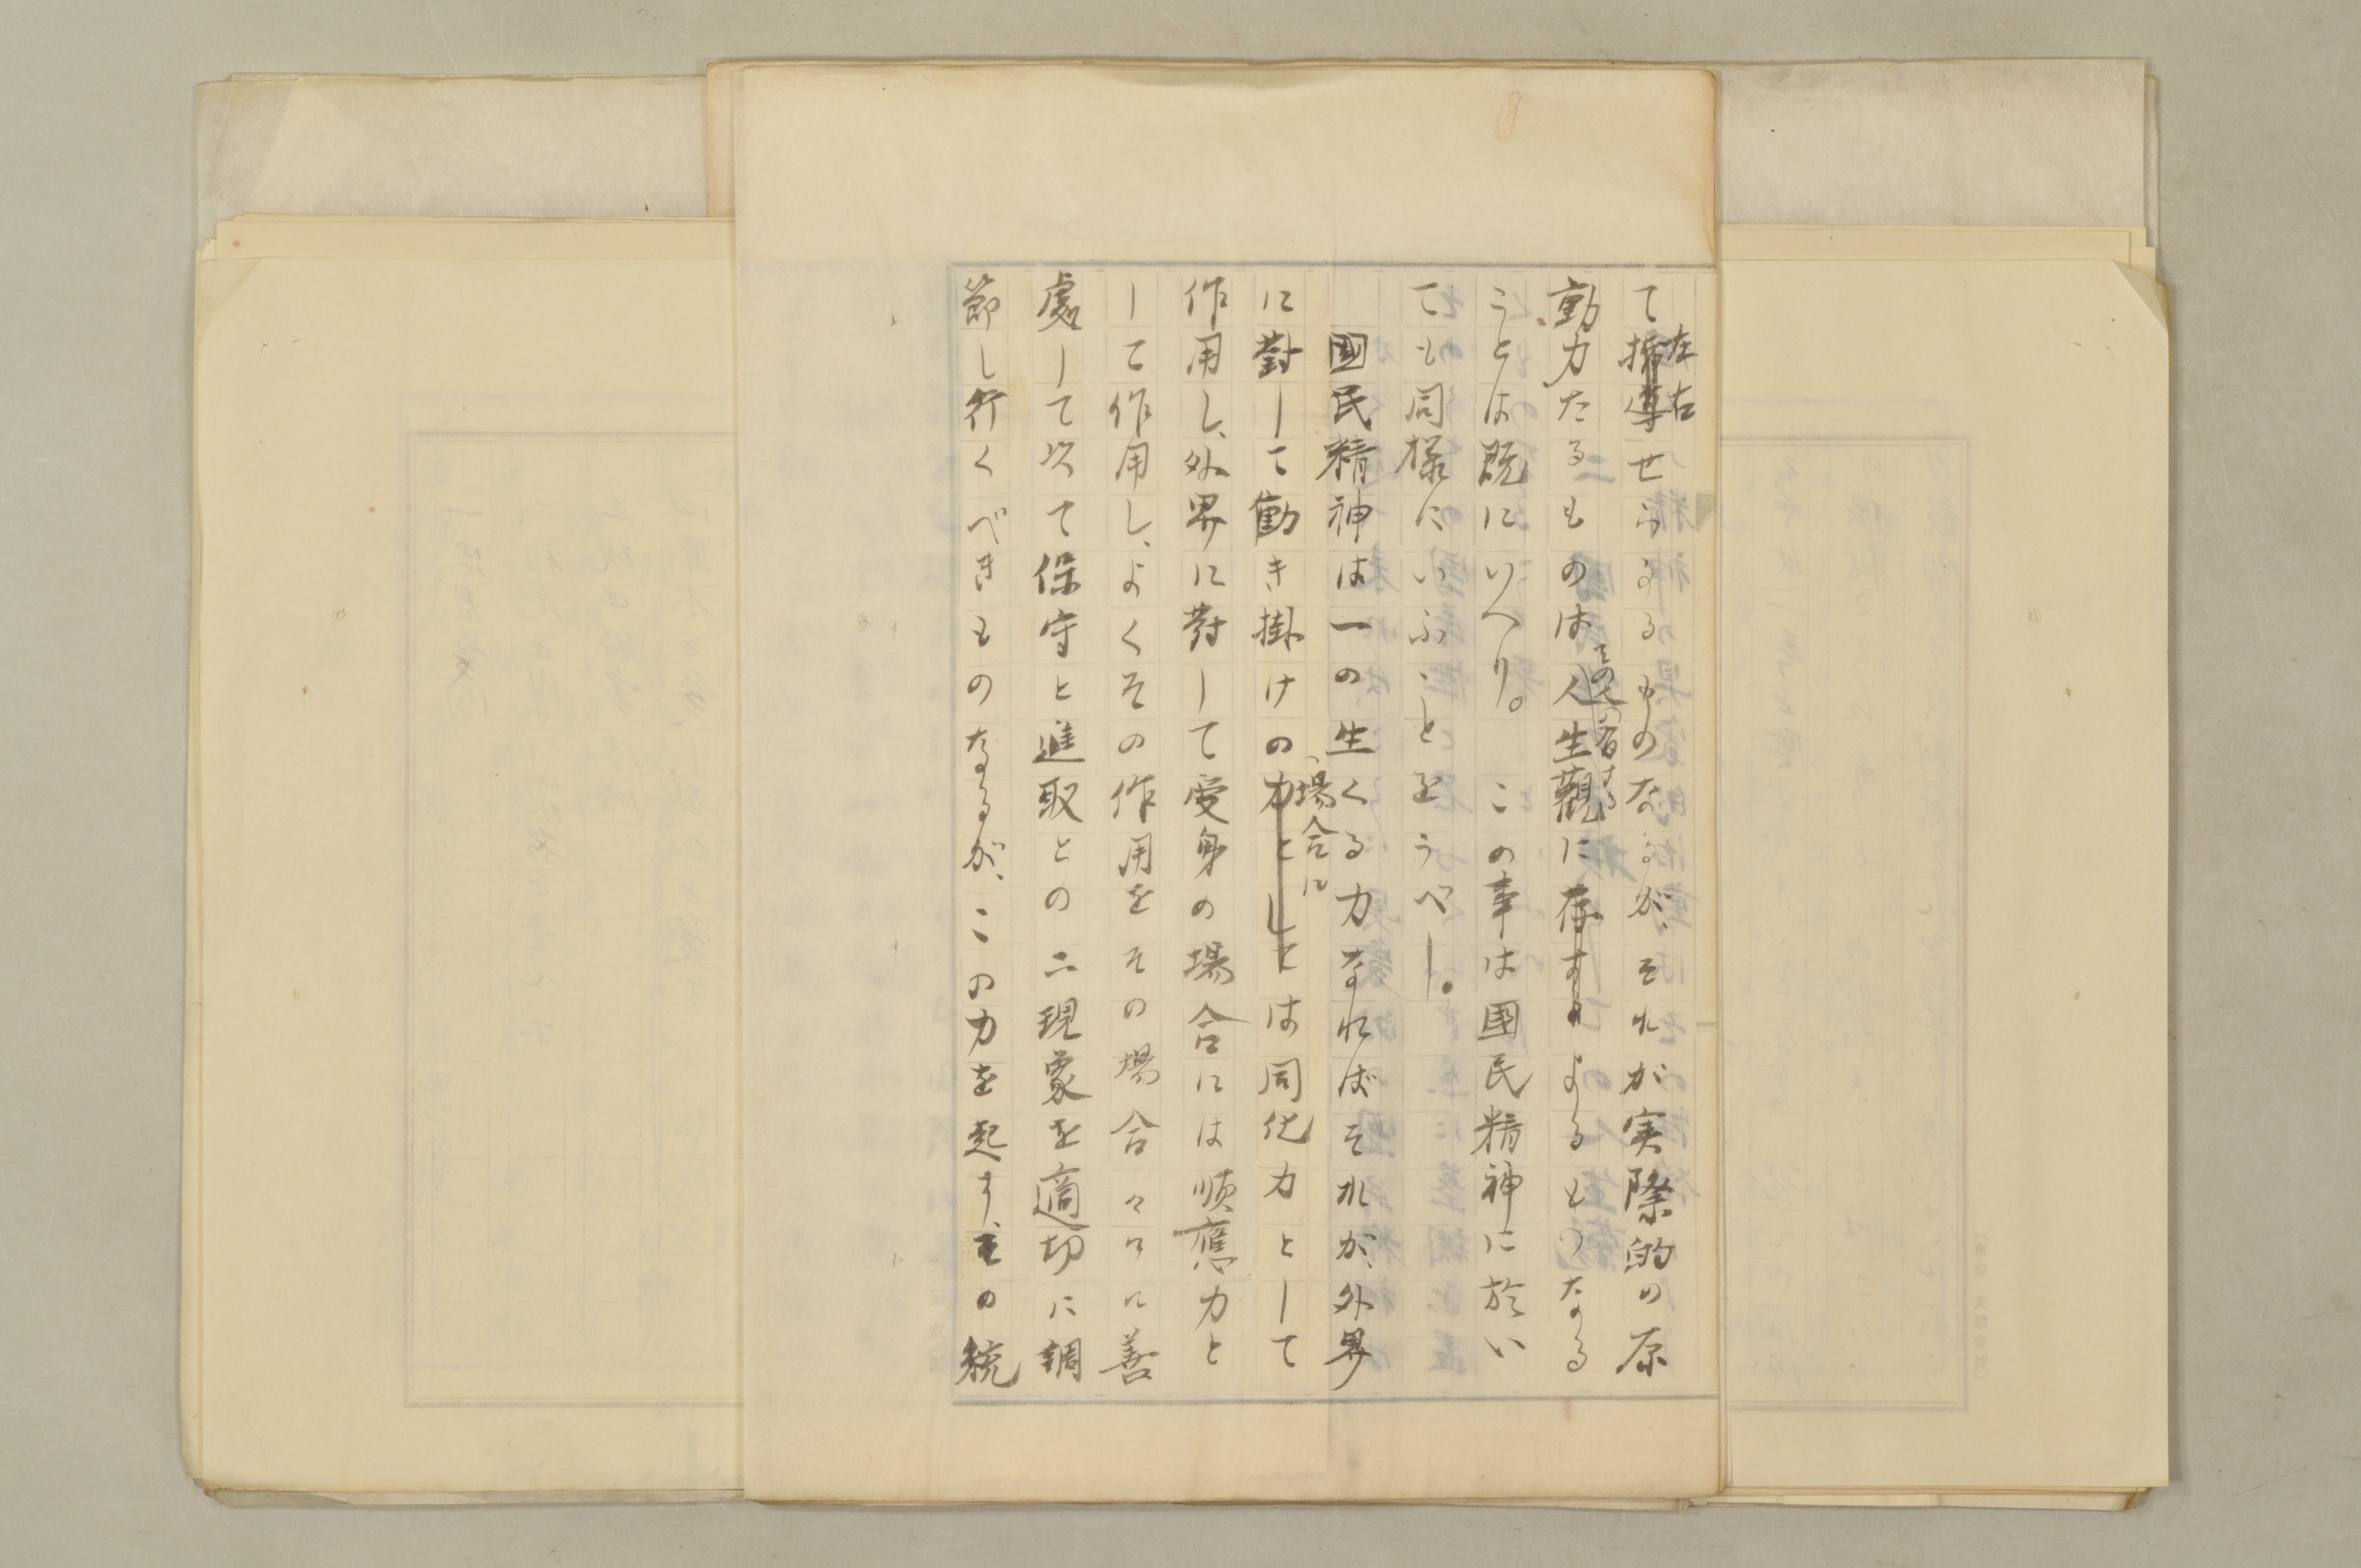 て左右せらるゝものなるが、それが実際的の原
動力たるものはその人の有する人生觀に存するによるものなる
ことは既にいへり。この事は國民精神に於い
ても同様にいふことをうべし。
國民精神は一の生くる力なればそれが、外界
に對して働き掛けの場合には同化力として
作用し、外界に對して受身の場合には順應力と
して作用し、よくその作用をその場合々々に善
處して以て保守と進取との二現象を適切に調
節し行くべきものなるが、この力を起す、その統